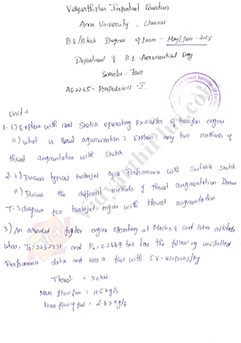 Vidyarthiplus Important Question
Anna University, Chennai
BE/BTech Degree of Exam - May/June - 2015
Department of BE - Aeronautical Engg
Semester - Four
AE2265 - Propulsion - I
Unit - 1
1. i) Explain with neat sketch operating principles of turbofan engine
ii) what is thrust augmentation? Explain any two methods of
thrust augmentation with sketch
2. i) Discuss typical turbojet cycle performance with suitable sketch
ii) Discuss the different methods of thrust augmentation. Draw
T-s diagram for turbojet engine with thrust augmentation
3) An advanced fighter engine operating at Mach 0.8 and 10 km altitude
has the following uninstalled
performance data and uses a fuel with CV =
Thrust = 50 kN
Mass flow of air = 45 kg/s
Mass flow of fuel = 2.65 kg/s